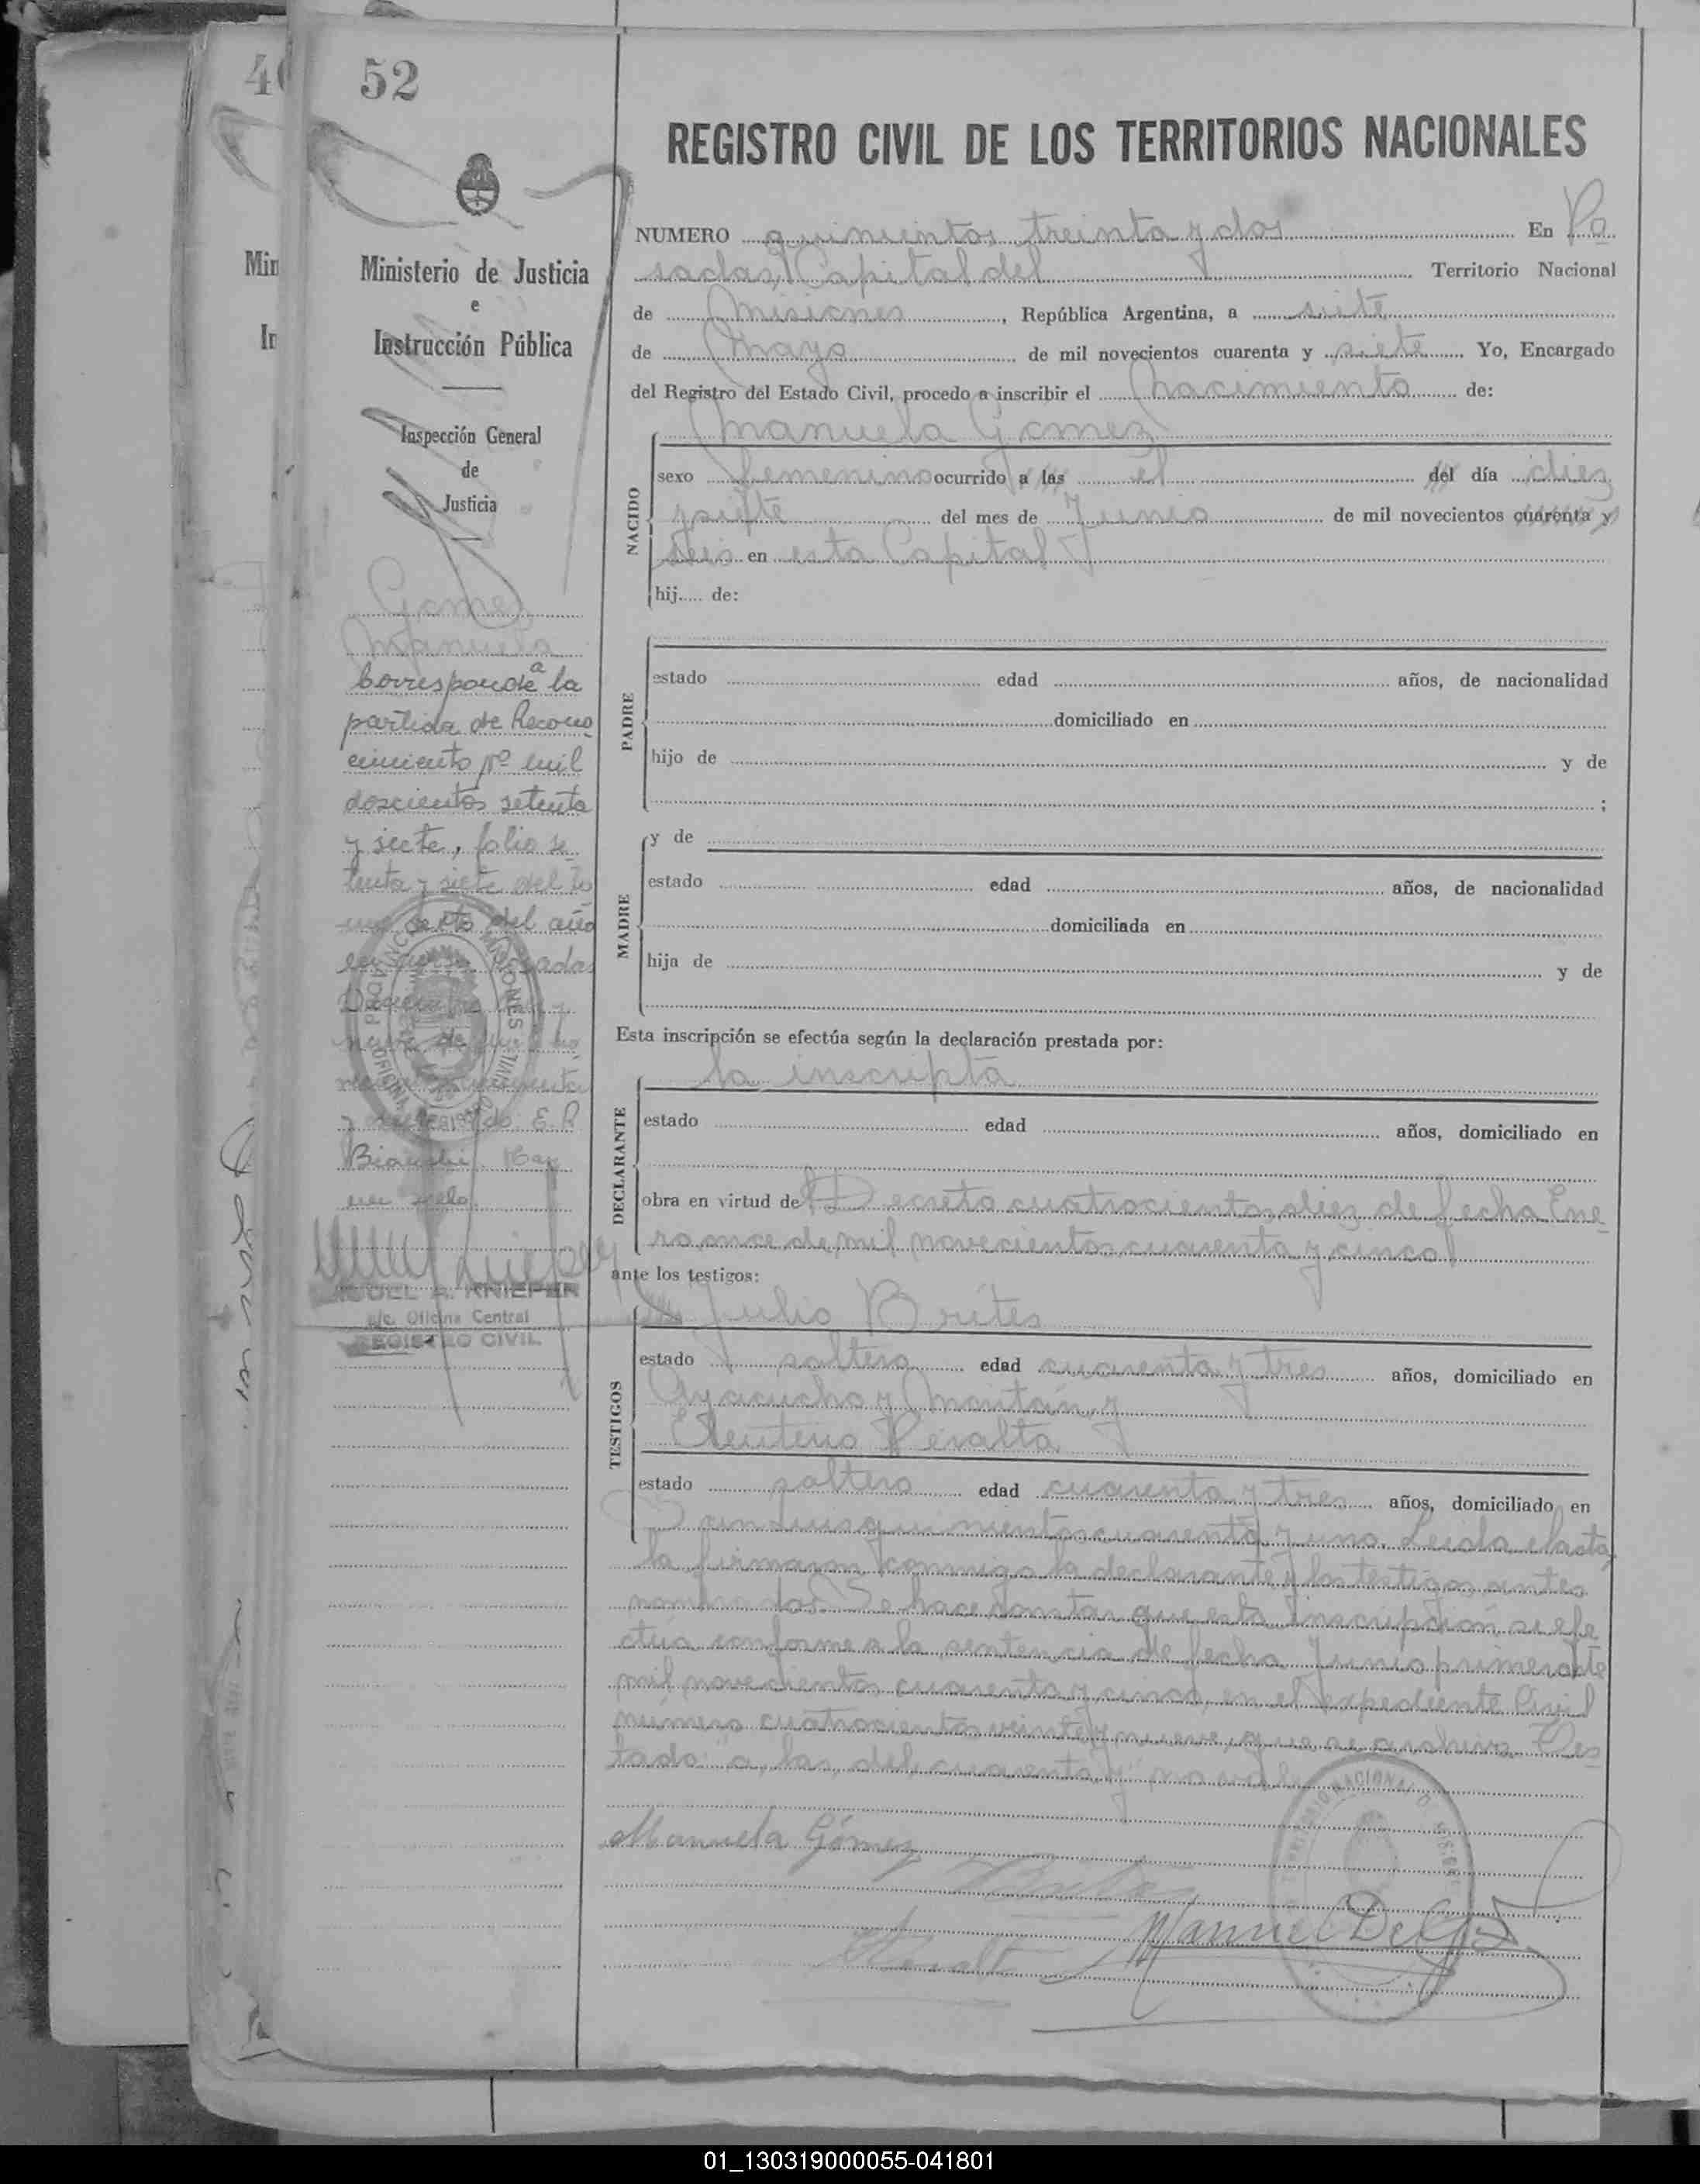 52
REGISTRO CIVIL DE LOS TERRITORIOS NACIONALES
NUMERO quinientos treinta y dos En Po
sadas, Capital del Territorio Nacional
de Misiones, República Argentina, a siete
de Mayo de mil novecientos cuarenta y siete Yo, Encargado
del Registro del Estado Civil, procedo a inscribir el nacimiento de:
Manuela Gomez
NACIDO
sexo femenino ocurrido a las el del día diez
y siete del mes de Junio de mil novecientos cuarenta y
seis en esta Capital
hij..... de:
PADRE
estado edad años, de nacionalidad
domiciliado en
hijo de y de
;
MADRE
y de
estado edad años, de nacionalidad
domiciliada en
hija de y de
Esta inscripción se efectúa según la declaración prestada por:
la inscripta
DECLARANTE
estado edad años, domiciliado en
obra en virtud de Decreto cuatrocientos diez de fecha Ene
ro once de mil novecientos cuarenta y cinco
ante los testigos:
Julio Brites
TESTIGOS
estado soltero edad cuarenta y tres años, domiciliado en
Ayacucho y
Eleuterio Peralta
estado soltero edad cuarenta y tres años, domiciliado en
quinientos cuarenta y uno. Leida el acta
la firmaron conmigo la declarante y los testigos antes
nombrados. Se hace constar que esta inscripción se efe
ctua conforme a la sentencia de fecha Junio primero de
mil novecientos cuarenta y cinco, en el expediente Civil
número cuatrocientos veinte y nueve, que se archiva. Tes
tado: a, las, del, cuarenta y no vale
Manuela Gómez
Ministerio de Justicia
e
Instrucción Pública
Inspección General
de
Justicia
Gomez
Manuela
Corresponde a la
partida de Recono
cimiento Nº mil
doscientos setenta
y siete, folio se
tenta y siete del to
mo sexto del año
en curso. Posadas
Diciembre
nueve de mil no
E. R.
Bianchi. Hay
un sello
MIGUEL A. KNIEPER
a/c. Oficina Central
REGISTRO CIVIL
01_130319000055-041801